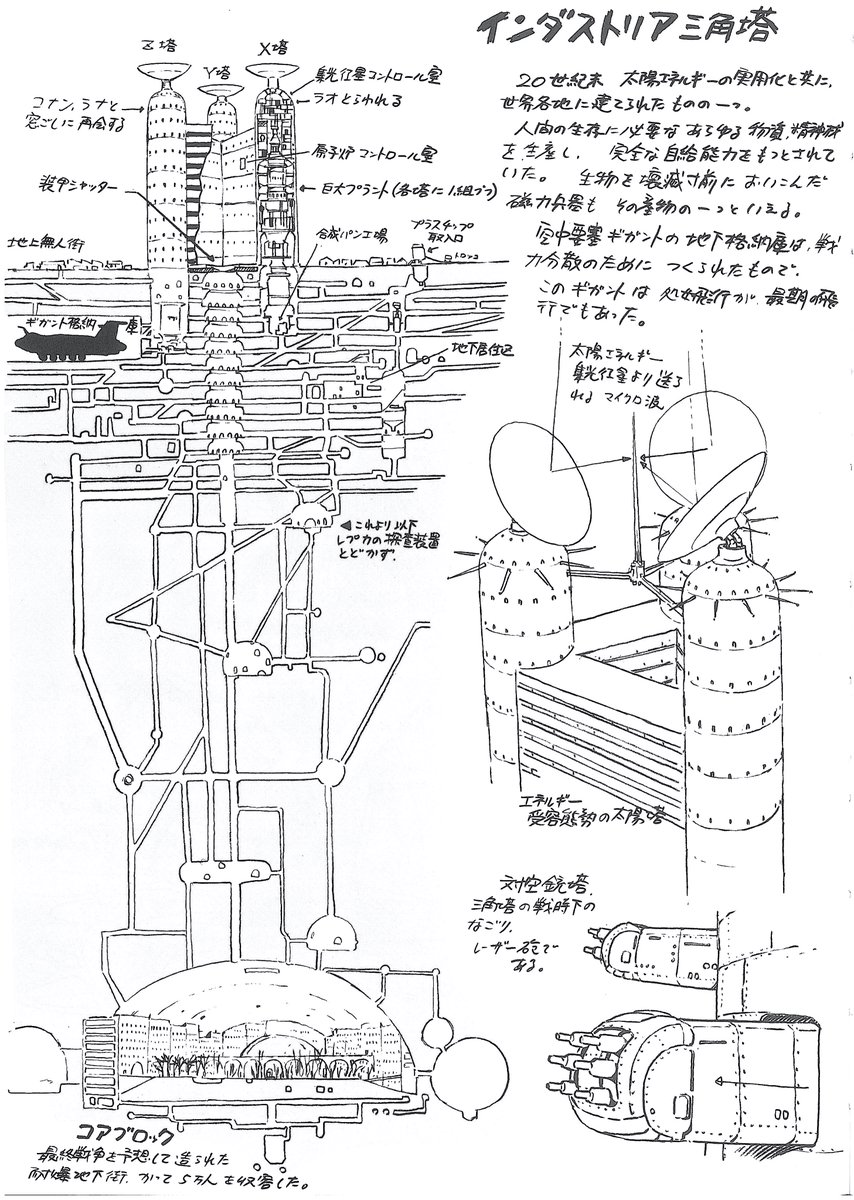 インダストリア三角塔
20世紀末 太陽エネルギーの実用化と共に、
世界各地に建てられたものの一つ。
人間の生存に必要なあらゆる物資、精神波
を生産し、完全な自給能力をもつとされて
いた。 生物を壊滅寸前においこんだ
磁力兵器も その産物の一つといえる。
空中要塞ギガントの地下格納庫は、戦
力分散のために つくられたもので、
このギガントは 処女飛行が、最期の飛
行でもあった。
Z塔
Y塔
X塔
コナン、ラナと
窓ごしに再会する
装甲シャッター
地上無人街
ラオとらわれる
原子炉コントロール室
巨大プラント(各塔に1組づつ)
合成パン工場
プラスチップ
取入口
トロッコ
ギガント格納庫
地下居住区
◀これより以下
レプカの探査装置
とどかず.
太陽エネルギー
れる マイクロ波
エネルギー
受容態勢の太陽塔
対空銃塔.
三角塔の戦時下の
なごり.
レーザー砲で
ある。
コアブロック
最終戦争を予想して造られた
耐爆地下街. かつて5万人を収容した。